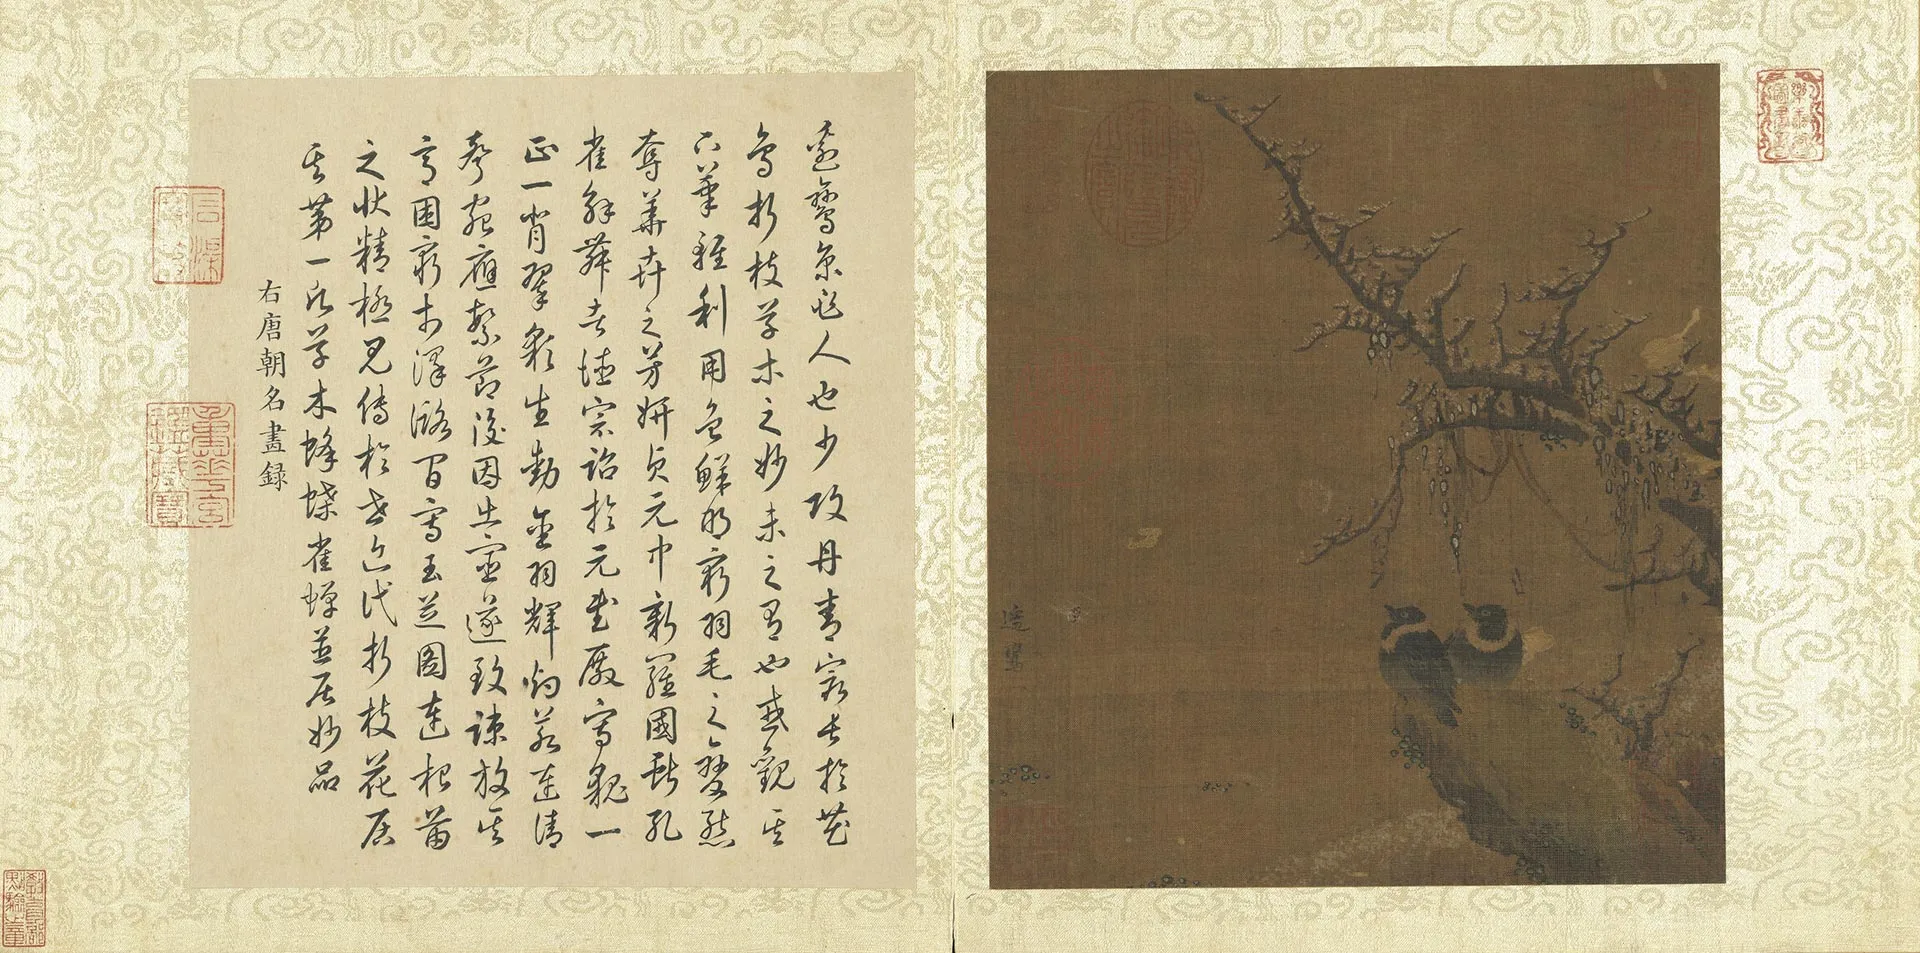 樂善堂圖書記
邊鸞
邊鸞京兆人也少攻丹青最長於花
鳥折枝草木之妙未之有也或觀其
下筆輕利用色鮮明窮羽毛之變態
奪華卉之芳妍貞元中新羅國獻孔
雀解舞者德宗詔於元武殿寫貌一
正一背翠彩生動金羽輝灼若連清
聲宛應繁節後因出宦遂致疎放其
意困窮於澤潞間寫玉芝圖連根苗
之狀精極見傳於世近代折枝花居
其第一凡草木蜂蝶雀蟬並居妙品
右唐朝名畫録
重華宮鑑藏寶